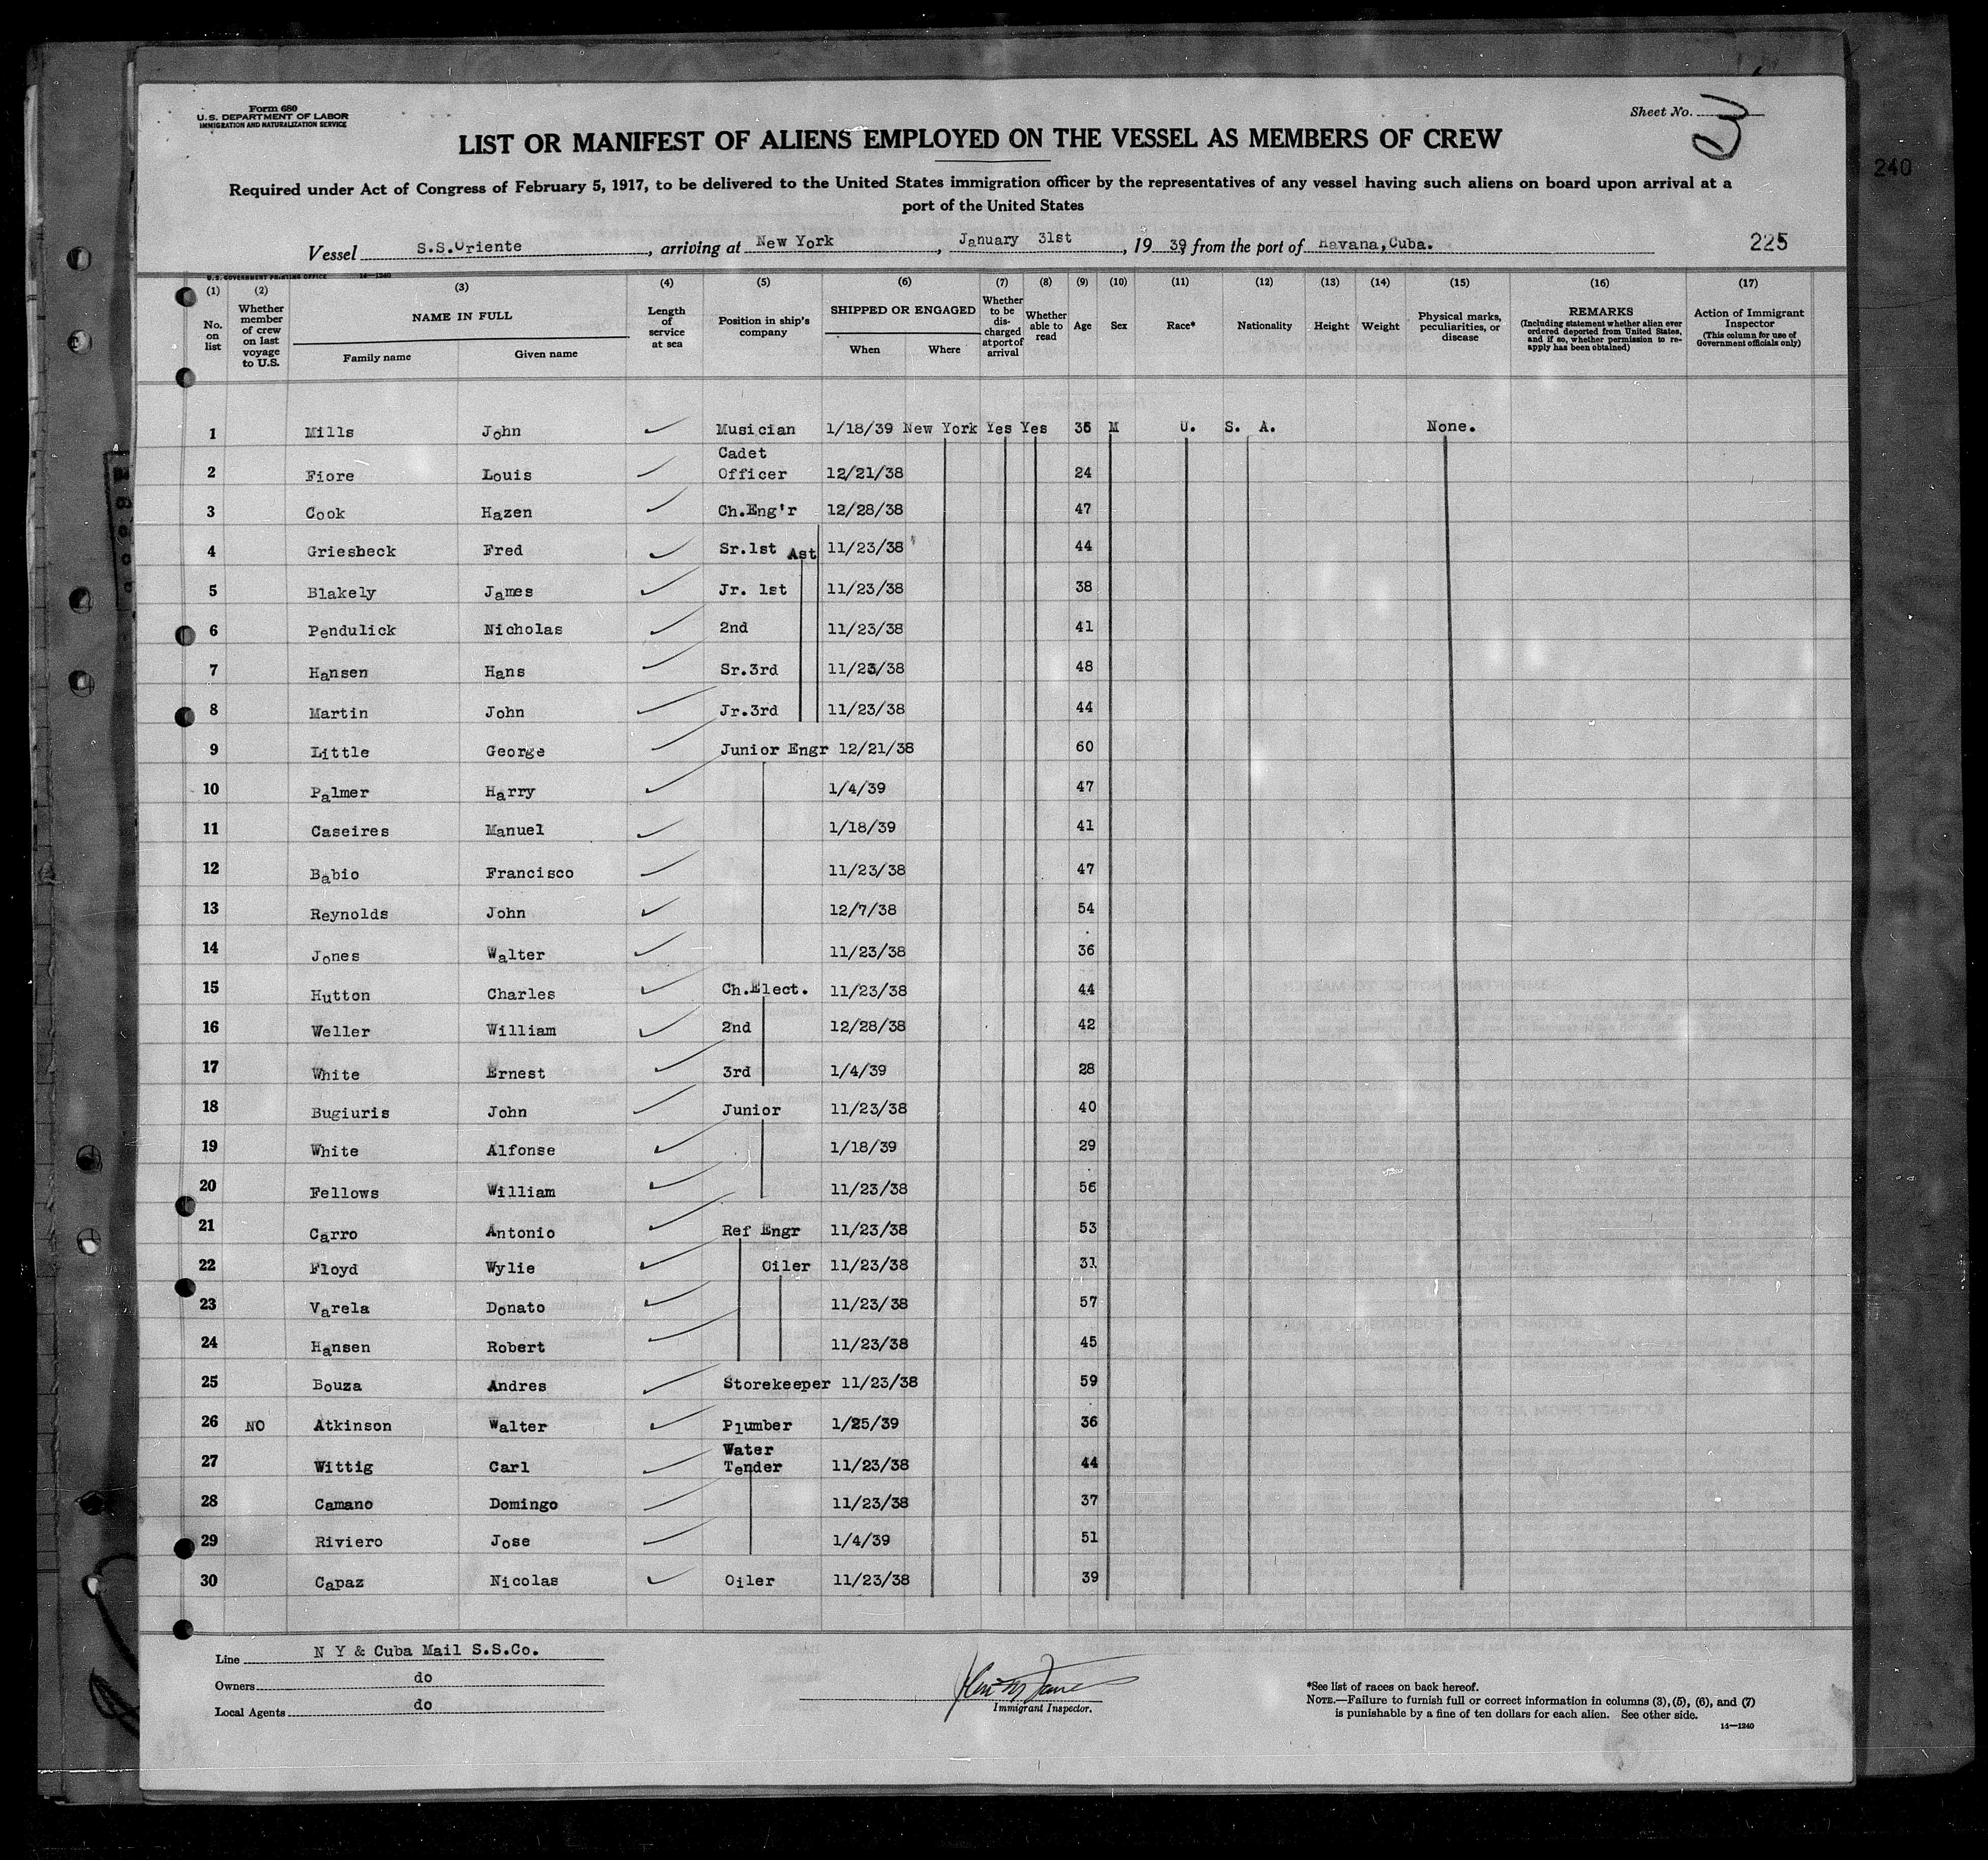 Form 680
U.S. DEPARTMENT OF LABOR
IMMIGRATION AND NATURALIZATION SERVICE
Sheet No. 3
LIST OR MANIFEST OF ALIENS EMPLOYED ON THE VESSEL AS MEMBERS OF CREW
240
Required under Act of Congress of February 5, 1917, to be delivered to the United States immigration officer by the representatives of any vessel having such aliens on board upon arrival at a
port of the United States
Vessel S.S.Oriente, arriving at New York, January 31st, 1939 from the port of Havana,Cuba. 225
U.S. GOVERNMENT PRINTING OFFICE 14—1240
(1) (2) (3) (4) (5) (6) (7) (8) (9) (10) (11) (12) (13) (14) (15) (16) (17)
No. on list
Whether member of crew on last voyage to U.S.
NAME IN FULL
Family name Given name
Length of service at sea
Position in ship's company
SHIPPED OR ENGAGED
When Where
Whether to be discharged at port of arrival
Whether able to read
Age Sex Race* Nationality Height Weight
Physical marks, peculiarities, or disease
REMARKS
(Including statement whether alien ever ordered deported from United States, and if so, whether permission to re-apply has been obtained)
Action of Immigrant Inspector
(This column for use of Government officials only)
1 Mills John Musician 1/18/39 New York Yes Yes 36 M U. S. A. None.
2 Fiore Louis Cadet Officer 12/21/38 24
3 Cook Hazen Ch.Eng'r 12/28/38 47
4 Griesbeck Fred Sr.1st Ast 11/23/38 44
5 Blakely James Jr. 1st 11/23/38 38
6 Pendulick Nicholas 2nd 11/23/38 41
7 Hansen Hans Sr.3rd 11/23/38 48
8 Martin John Jr.3rd 11/23/38 44
9 Little George Junior Engr 12/21/38 60
10 Palmer Harry 1/4/39 47
11 Caseires Manuel 1/18/39 41
12 Babio Francisco 11/23/38 47
13 Reynolds John 12/7/38 54
14 Jones Walter 11/23/38 36
15 Hutton Charles Ch.Elect. 11/23/38 44
16 Weller William 2nd 12/28/38 42
17 White Ernest 3rd 1/4/39 28
18 Bugiuris John Junior 11/23/38 40
19 White Alfonse 1/18/39 29
20 Fellows William 11/23/38 56
21 Carro Antonio Ref Engr 11/23/38 53
22 Floyd Wylie Oiler 11/23/38 31
23 Varela Donato 11/23/38 57
24 Hansen Robert 11/23/38 45
25 Bouza Andres Storekeeper 11/23/38 59
26 NO Atkinson Walter Plumber 1/25/39 36
27 Wittig Carl Water Tender 11/23/38 44
28 Camano Domingo 11/23/38 37
29 Riviero Jose 1/4/39 51
30 Capaz Nicolas Oiler 11/23/38 39
Line N Y & Cuba Mail S.S.Co.
Owners do
Local Agents do
Immigrant Inspector.
*See list of races on back hereof.
NOTE.—Failure to furnish full or correct information in columns (3), (5), (6), and (7)
is punishable by a fine of ten dollars for each alien. See other side.
14—1240